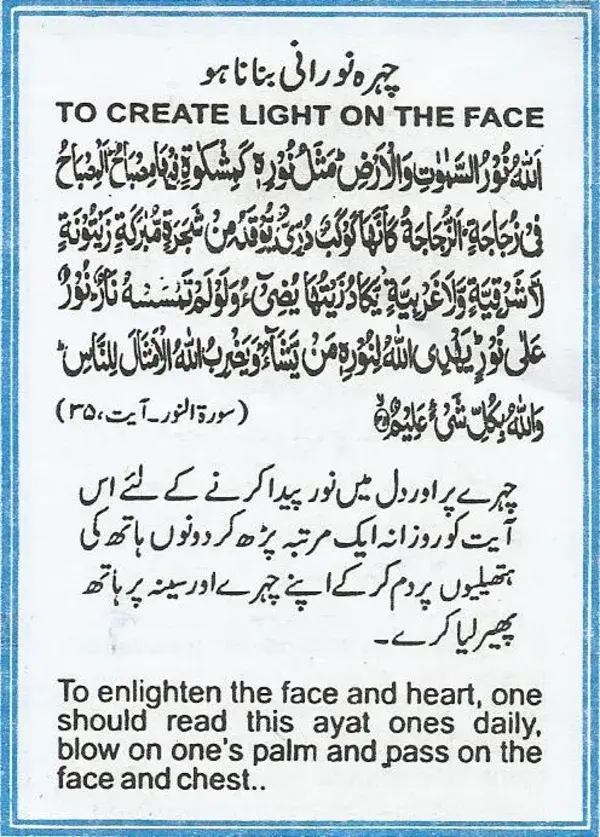 چہرہ نورانی بنانا ہو
TO CREATE LIGHT ON THE FACE
اَللّٰهُ نُوْرُ السَّمٰوٰتِ وَالْاَرْضِ ؕ مَثَلُ نُوْرِهٖ كَمِشْكٰوةٍ فِيْهَا مِصْبَاحٌ ؕ اَلْمِصْبَاحُ
فِيْ زُجَاجَةٍ ؕ اَلزُّجَاجَةُ كَاَنَّهَا كَوْكَبٌ دُرِّيٌّ يُّوْقَدُ مِنْ شَجَرَةٍ مُّبٰرَكَةٍ زَيْتُوْنَةٍ
لَّا شَرْقِيَّةٍ وَّلَا غَرْبِيَّةٍ يَّكَادُ زَيْتُهَا يُضِيْٓءُ وَلَوْ لَمْ تَمْسَسْهُ نَارٌ ؕ نُوْرٌ
عَلٰى نُوْرٍ ؕ يَهْدِي اللّٰهُ لِنُوْرِهٖ مَنْ يَّشَآءُ ؕ وَيَضْرِبُ اللّٰهُ الْاَمْثَالَ لِلنَّاسِ ؕ
وَاللّٰهُ بِكُلِّ شَيْءٍ عَلِيْمٌ ﴿۳۵﴾ (سورۃ النور۔ آیت، ۳۵)
چہرے پر اور دل میں نور پیدا کرنے کے لئے اس
آیت کو روزانہ ایک مرتبہ پڑھ کر دونوں ہاتھ کی
ہتھیلیوں پر دم کر کے اپنے چہرے اور سینہ پر ہاتھ
پھیر لیا کرے۔
To enlighten the face and heart, one
should read this ayat ones daily,
blow on one's palm and pass on the
face and chest..